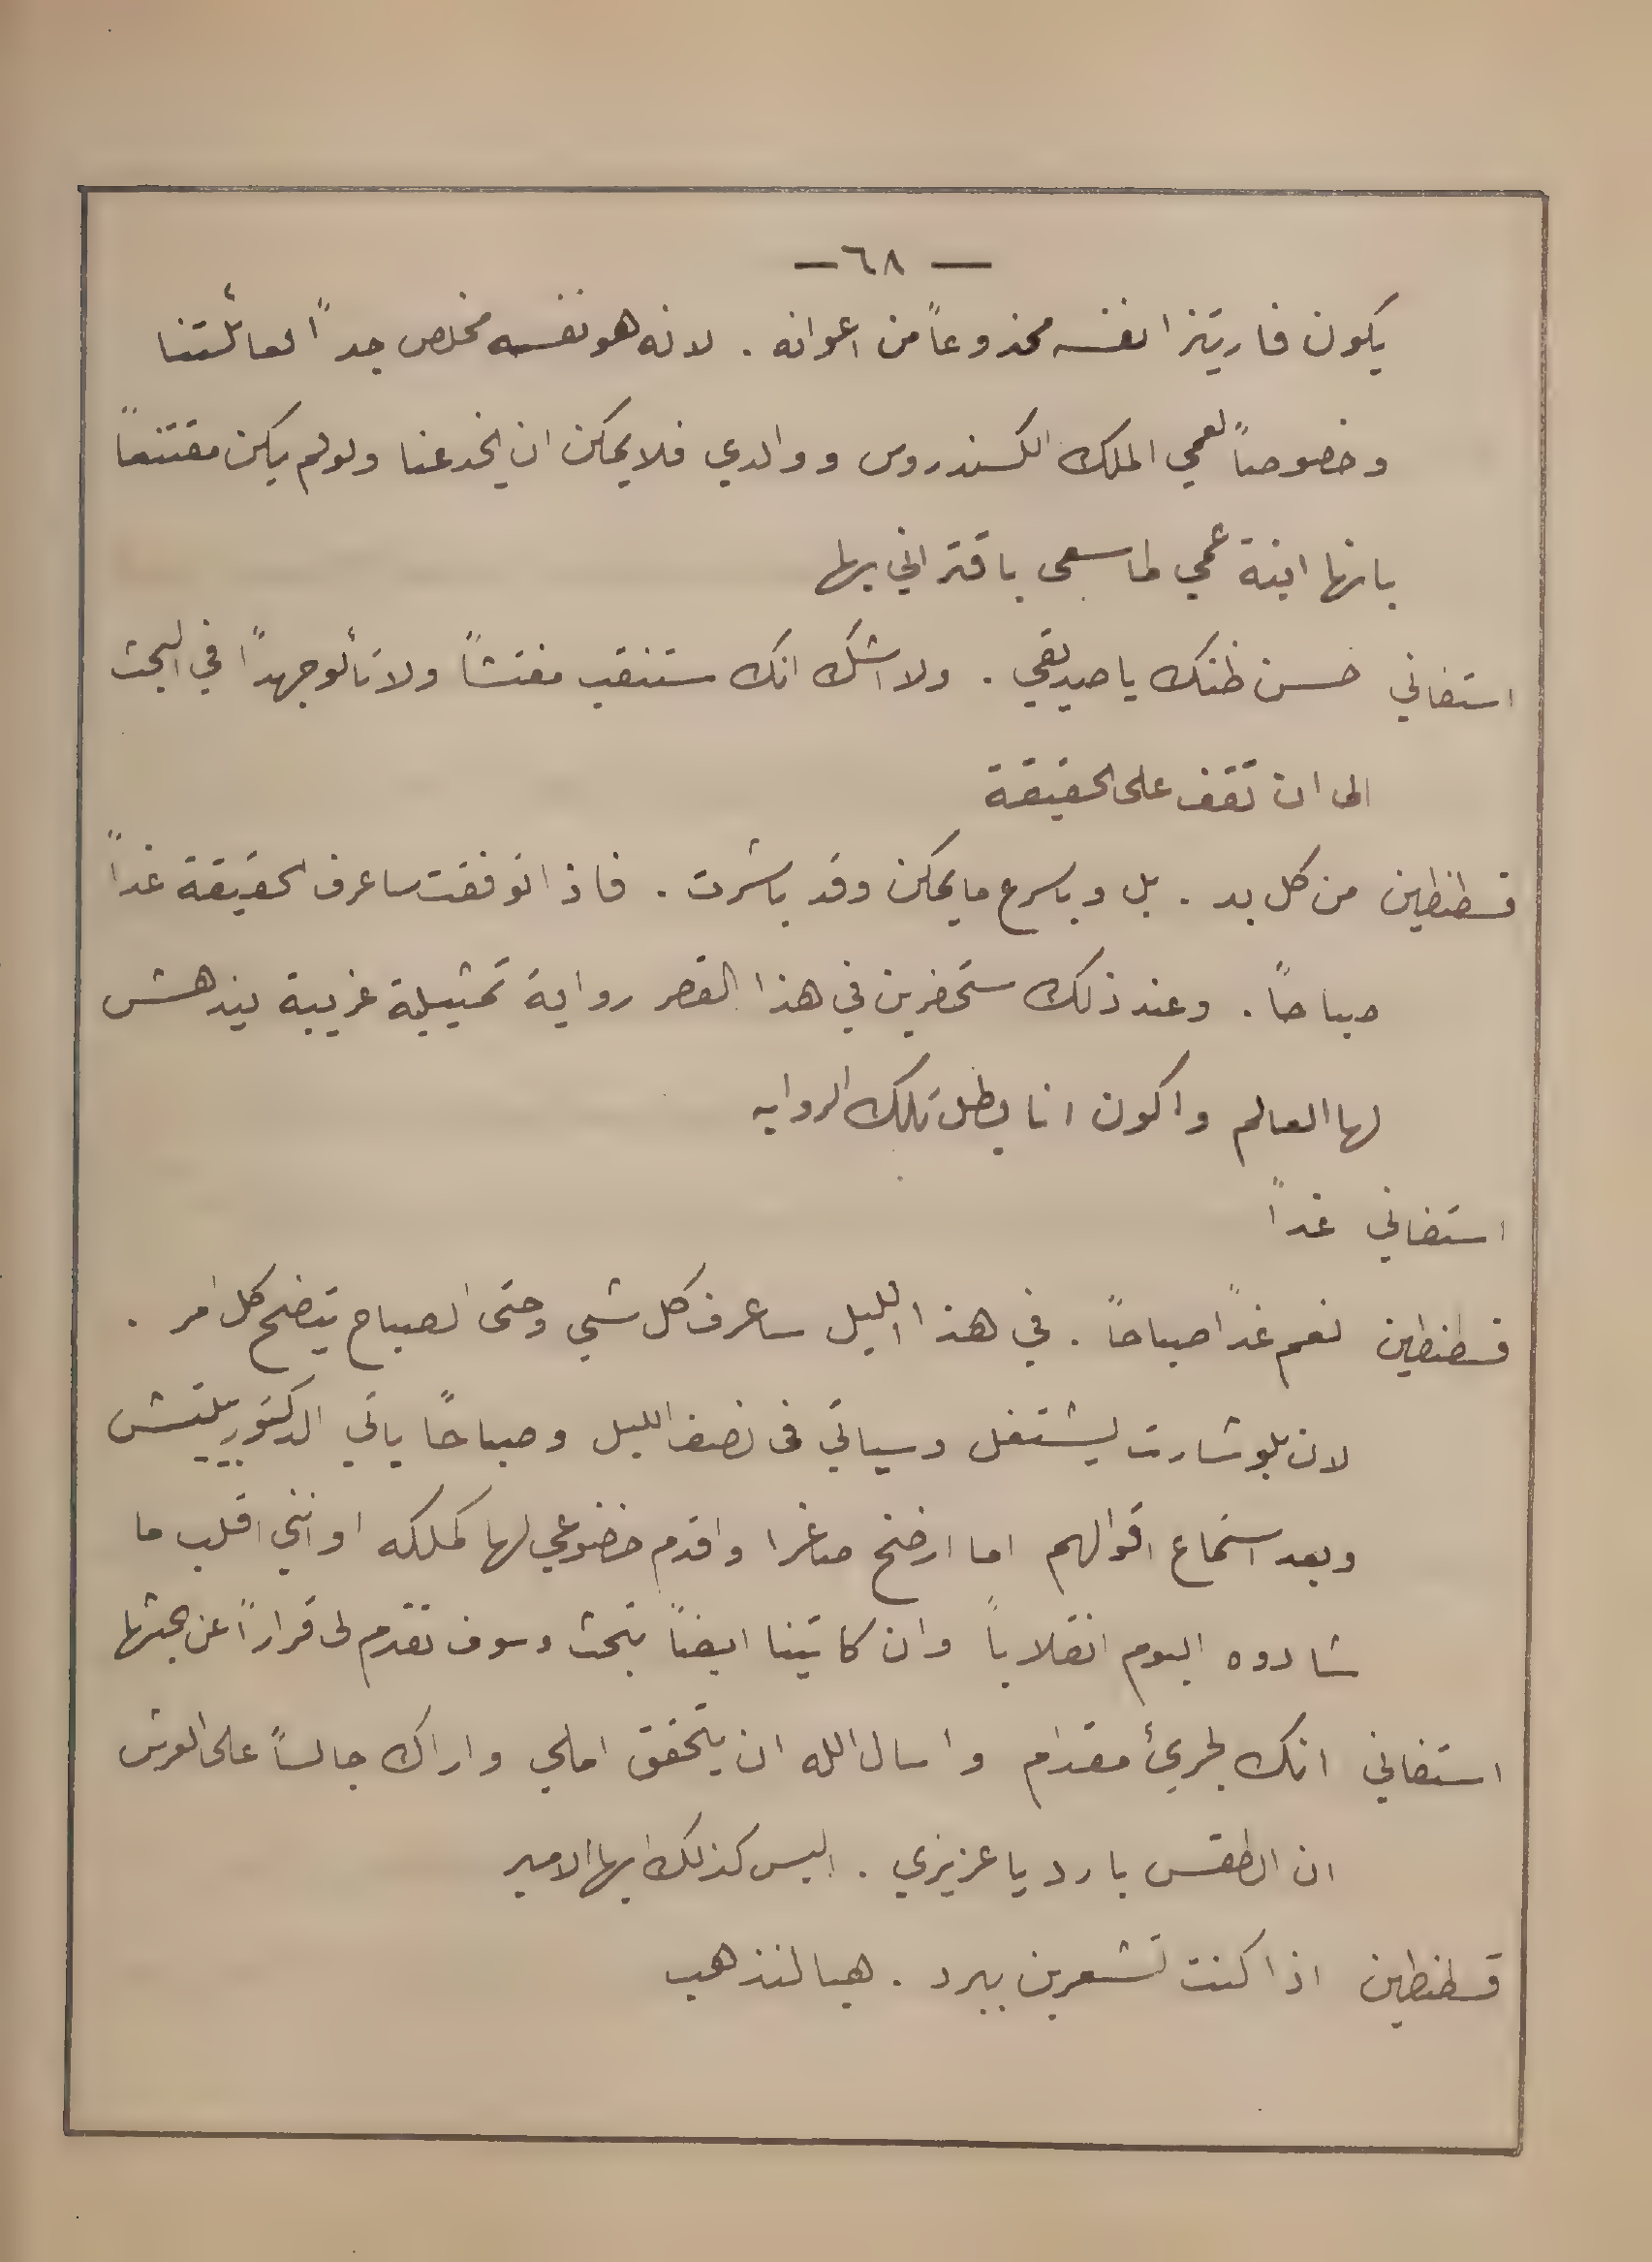 — ٦٨ —
يكون فاريتزا نفسه مخدوعاً من اعوانه . لانه هو نفسه مخلص جداً لعائلتنا
وخصوصاً لعمي الملك الكسندروس ووالدي فلا يمكن ان يخدعنا ولو لم يكن مقتنعاً
بانها ابنة عمي لما سعى باقتراني بها
استفاني حسن ظنك يا صديقي . ولا اشك انك ستنقب مفتشاً ولا تألو جهداً في البحث
الى ان تقف على الحقيقة
قسطنطين من كل بد . بل وباسرع ما يمكن وقد باشرت . فاذا توفقت ساعرف الحقيقة غداً
صباحاً . وعند ذلك ستحضرين في هذا القصر رواية تمثيلية غريبة يندهش
لها العالم واكون انا بطل تلك الروايه
استفاني غداً
قسطنطين نعم غداً صباحاً . في هذا الليل ساعرف كل شي وحتى الصباح يتضح كل امر .
لان بلوشارت يشتغل وسياتي فى نصف الليل وصباحاً ياتي الدكتور
وبعد استماع اقوالهم اما ارضخ صاغرا واقدم خضوعي لها كملكه او انني اقلب ما
شادوه اليوم انقلاباً وان كاتينا ايضاً تبحث وسوف تقدم لى قراراً عن بحثها
استفاني انك لجريئ مقدام واسال الله ان يتحقق املي واراك جالساً على العرش
ان الطقس بارد يا عزيزي . اليس كذلك ايها الامير
قسطنطين اذا كنت تشعرين ببرد . هيا لنذهب